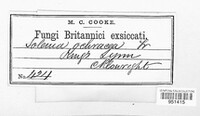 M. C. COOKE.
Fungi Britannici exsiccati,
Solenia ochracea
King's Lynn
C. Plowright
No. 424
951415